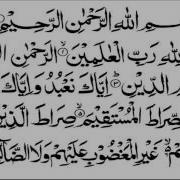 سْمِ اللهِ الرَّحْمٰنِ الرَّحِيْمِ
لِلّٰهِ رَبِّ الْعٰلَمِيْنَ ۙ﴿۱﴾ الرَّحْمٰنِ
الدِّيْنِ ؕ﴿۳﴾ اِيَّاكَ نَعْبُدُ وَاِيَّاكَ
صِّرَاطَ الْمُسْتَقِيْمَ ۙ﴿۵﴾ صِرَاطَ الَّذِيْنَ
هِمْ ۙ غَيْرِ الْمَغْضُوْبِ عَلَيْهِمْ وَلَا الضَّآ